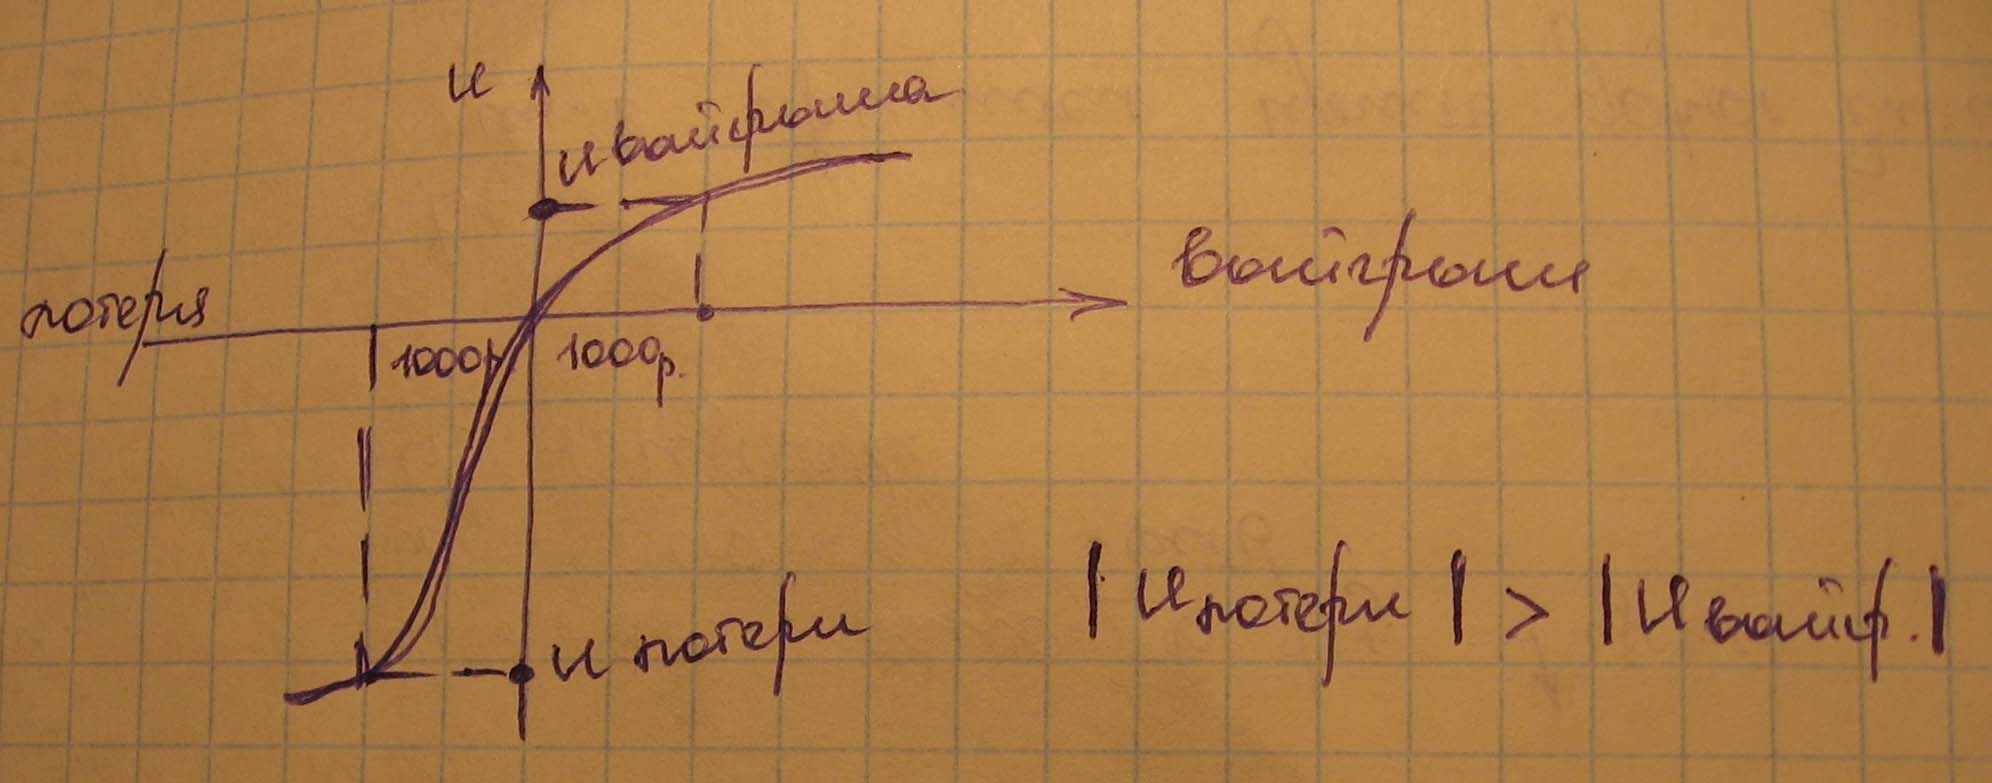 u
u выигрыша
выигрыш
потеря
1000р. 1000р.
u потери
|u потери| > |u выигр.|